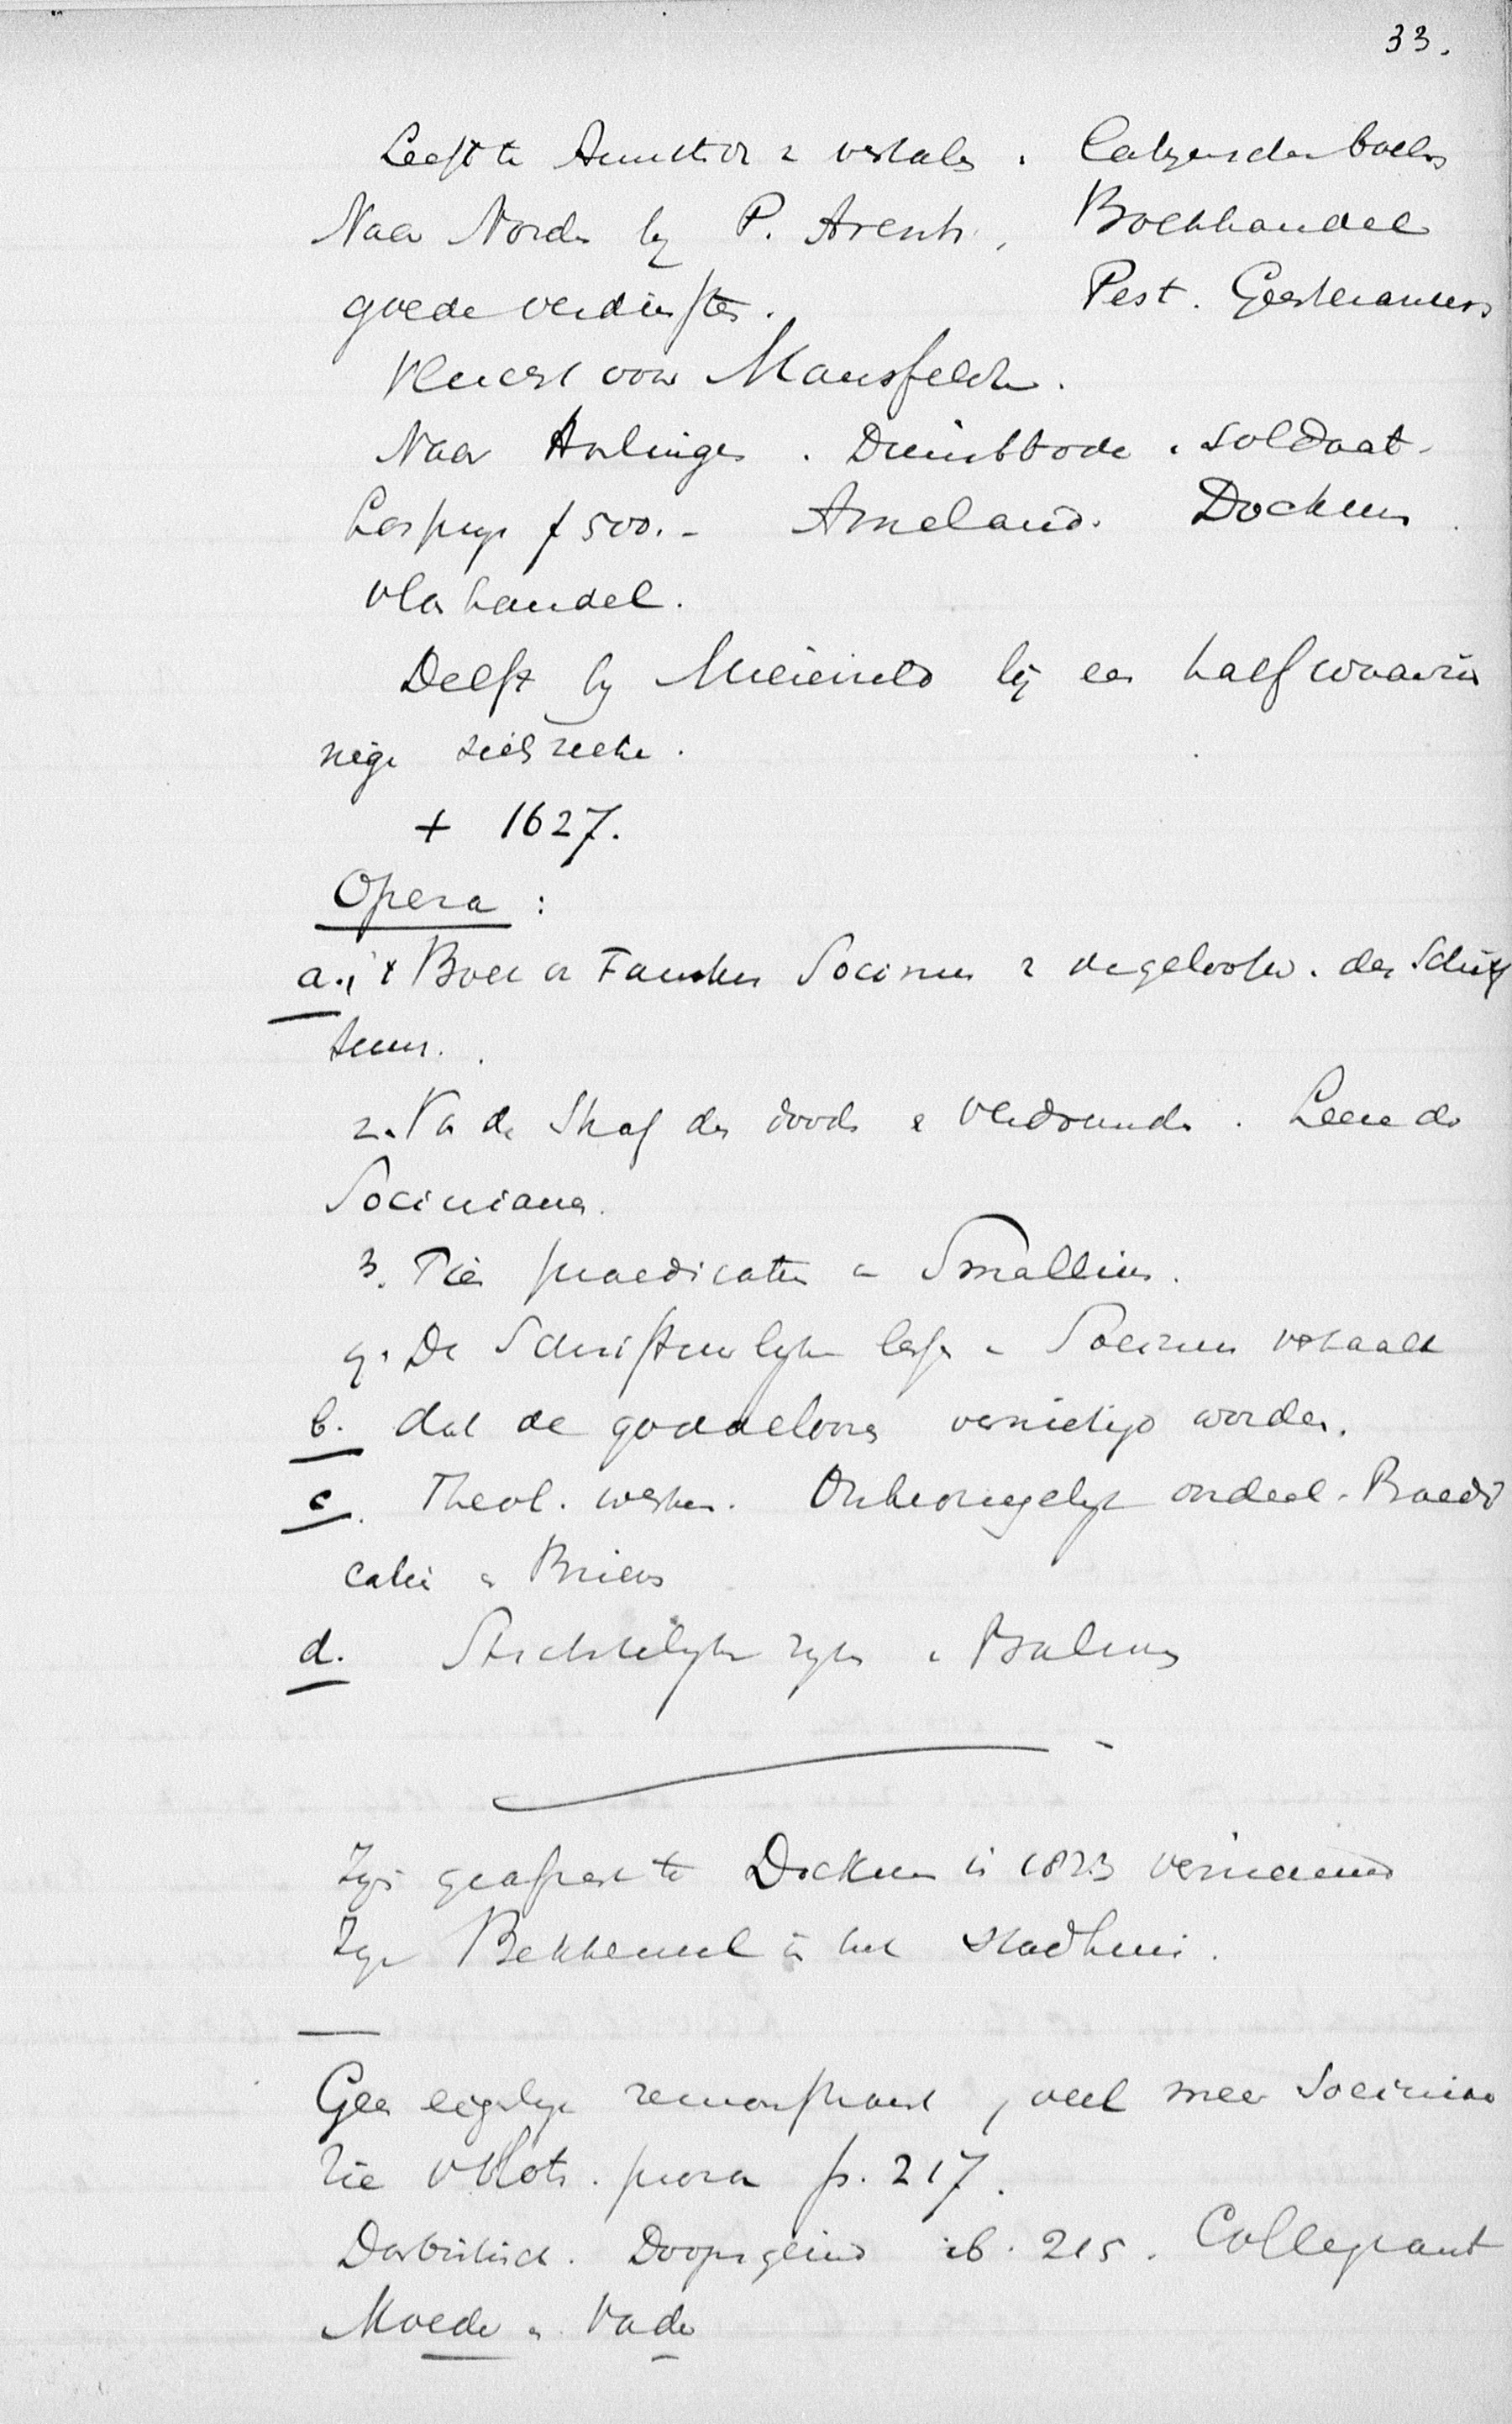 33.
Leeft te vertalen.
Naar Norden by P. Arents, Boekhandel
goede verdiensten. Pest. Geesteranus
Vlucht voor Mansfeldt.
Naar Harlingen. Dienstbode. soldaat.
f 500.- Ameland. Dockum
vlashandel.
Delft by bij een half waanzin
nige zielszieke.
+ 1627.
Opera:
a. 1 't Boek v Faustus Socinus v de geloofw. der Schrif
tuur.
2. Va de Straf des doods & verdoemds. Leere der
Socinianen.
3. Tien praedicatien v Smallius.
4. De Schriftuurlyke lesse v Socinus vertaalt
b. dat de goddeloozen vernietigd worden.
c. Theol. werken. Onbewegelyk ordeel. Praedi
catie & Brieven
d. Stichtelyke rymen & Psalmen
Zyn grafzerk te Dockum is 1823 vernieuwd
Zyn Bekkeneel in het Stadhuis.
Geen eigenlyk remonstrant, veel meer Sociniaan
Zie v Slot. p. 217.
Doopsgezind ib. 215. Collegiant
Moeder & Vader